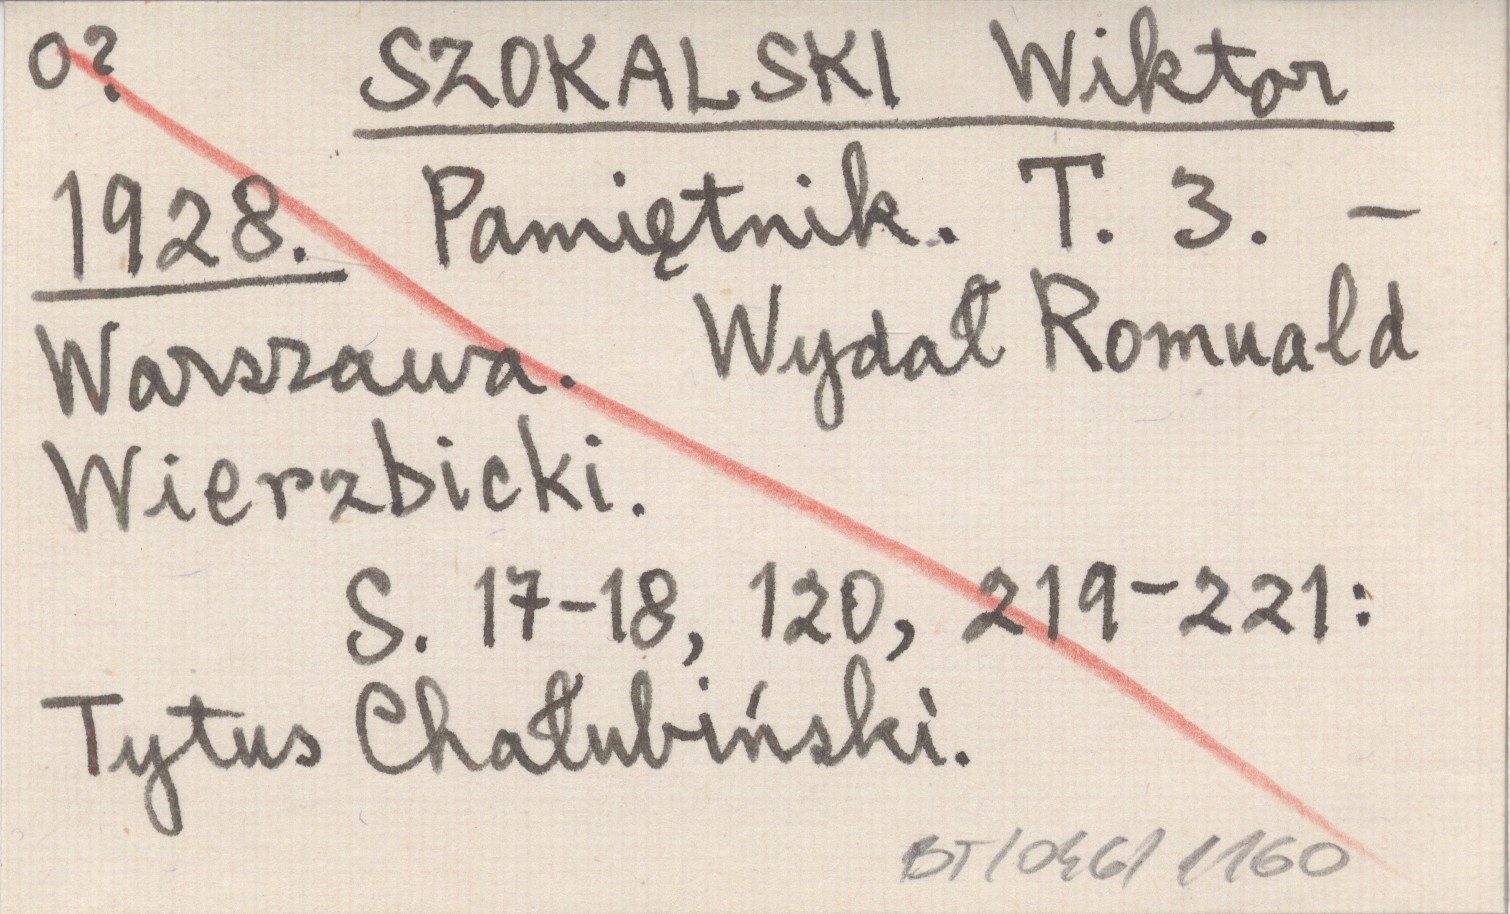 o? SZOKALSKI Wiktor
1928. Pamiętnik. T. 3. –
Warszawa. Wydał Romuald
Wierzbicki.
S. 17–18, 120, 219–221:
Tytus Chałubiński.
BT/046/1160